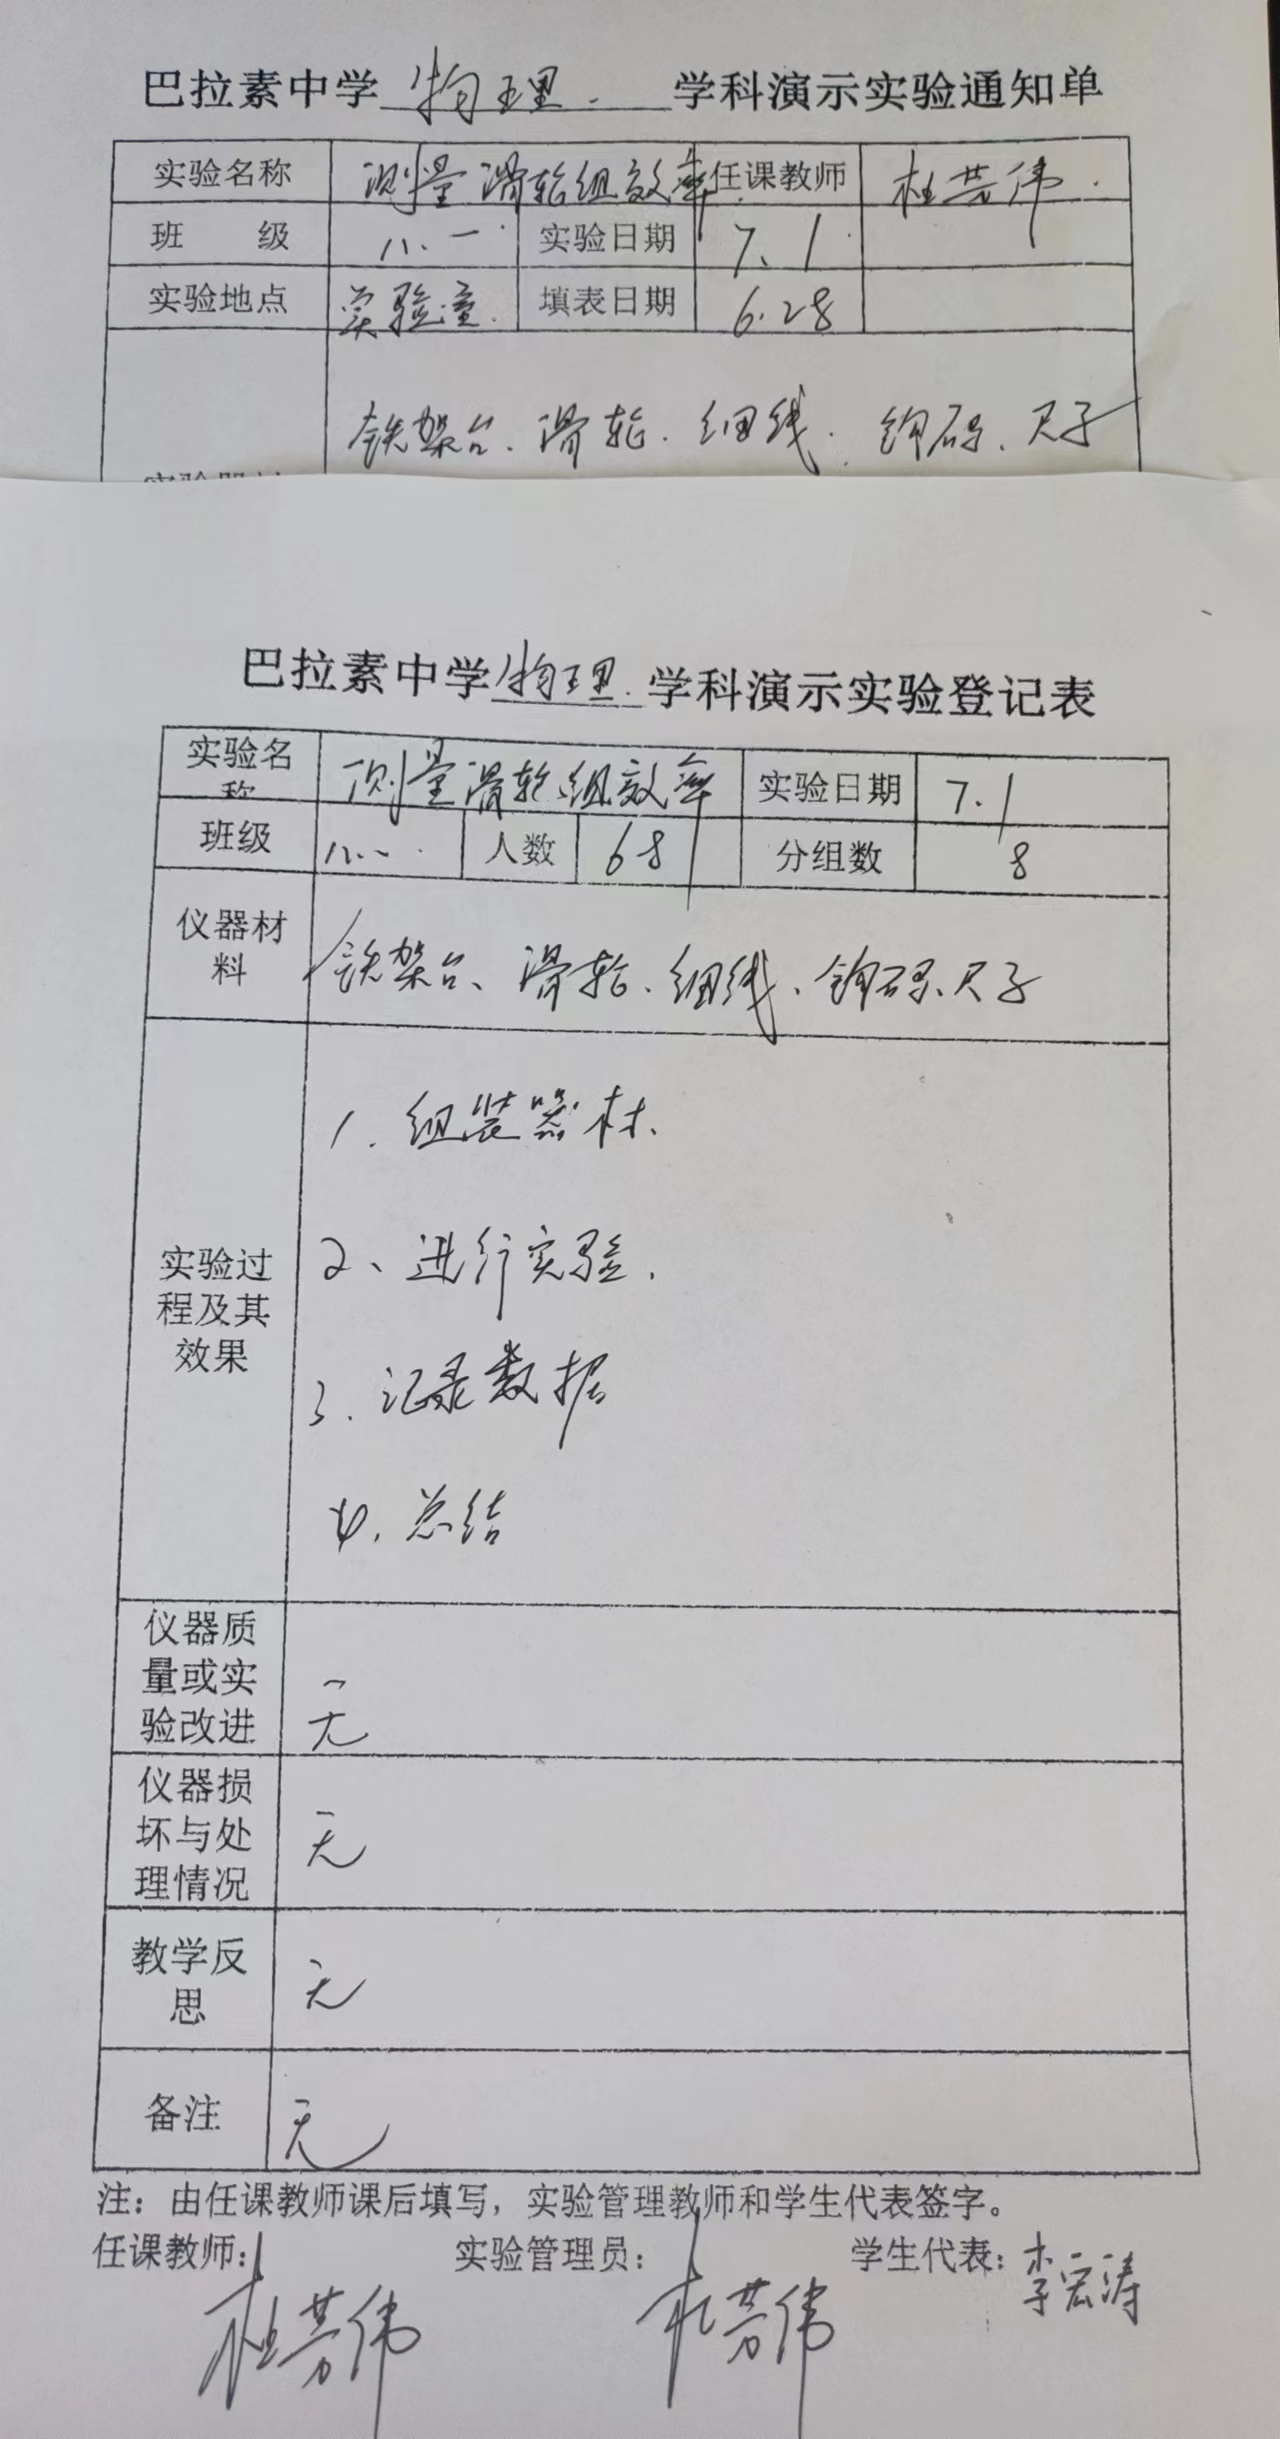 巴拉素中学 物理 学科演示实验通知单
实验名称 测量滑轮组效率 任课教师 杜芳伟
班 级 八.一 实验日期 7.1
实验地点 实验室 填表日期 6.28
铁架台、滑轮、细线、钩码、尺子
巴拉素中学 物理 学科演示实验登记表
实验名称 测量滑轮组效率 实验日期 7.1
班级 八.一 人数 68 分组数 8
仪器材料 铁架台、滑轮、细线、钩码、尺子
实验过程及其效果
1、组装器材
2、进行实验
3、记录数据
4、总结
仪器质量或实验改进 无
仪器损坏与处理情况 无
教学反思 无
备注 无
注：由任课教师课后填写，实验管理教师和学生代表签字。
任课教师：杜芳伟 实验管理员：杜芳伟 学生代表：李宏涛